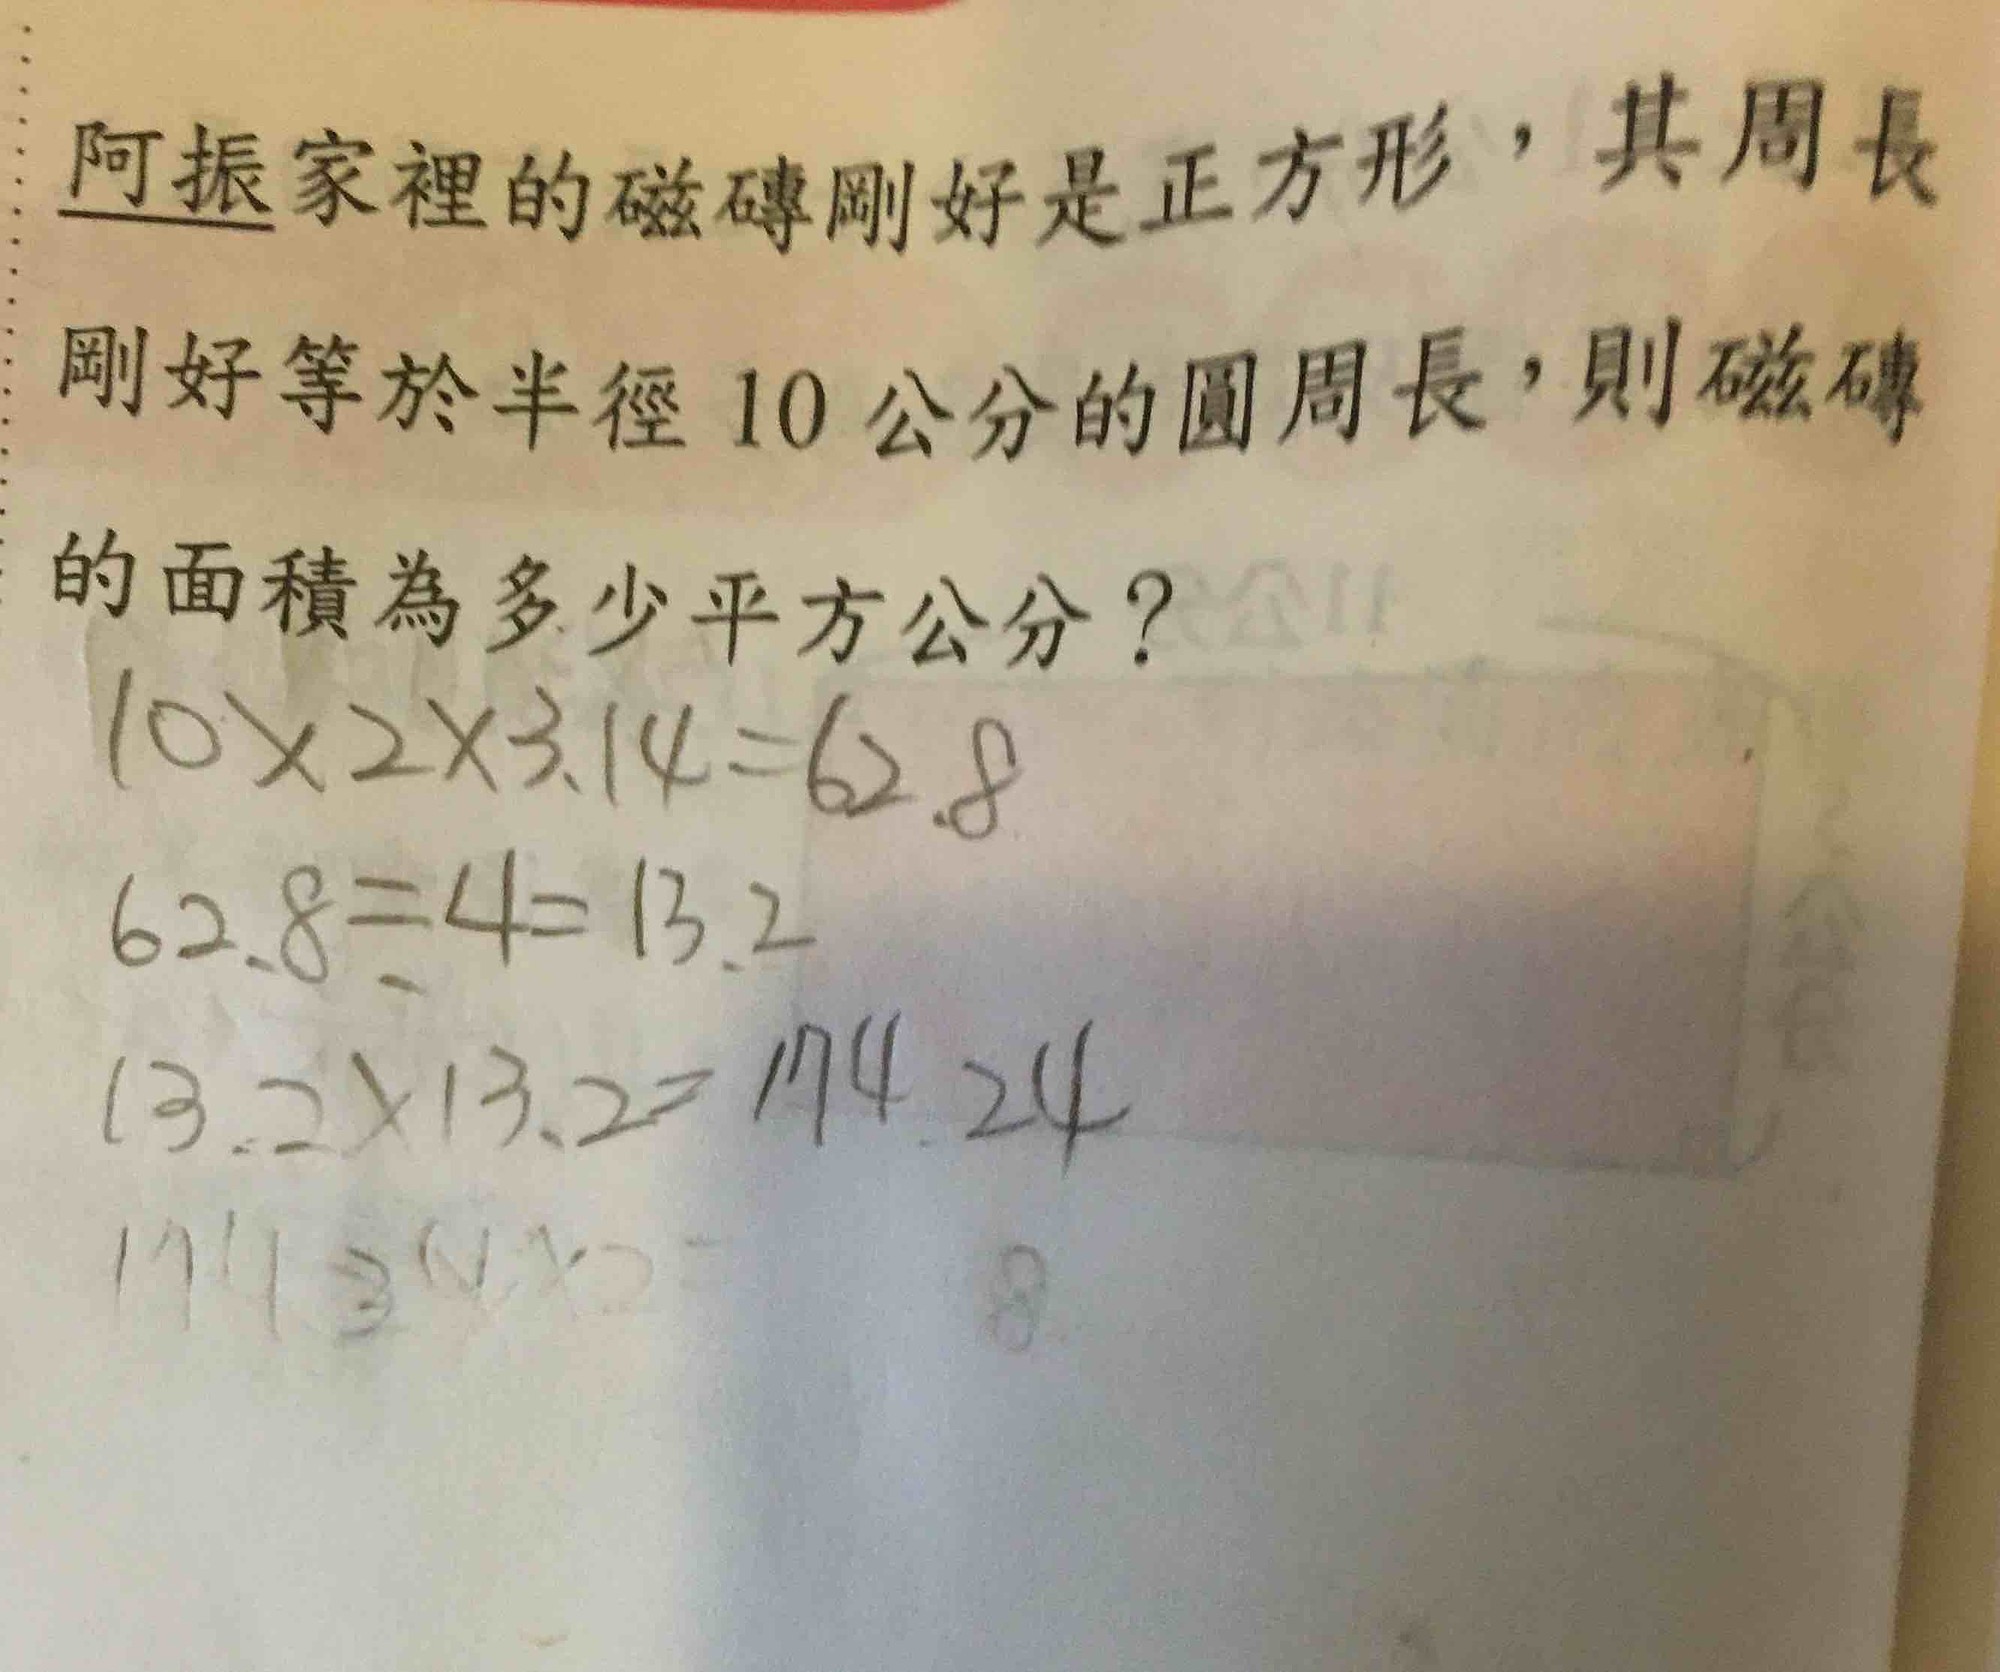 阿振家裡的磁磚剛好是正方形，其周長
剛好等於半徑 10 公分的圓周長，則磁磚
的面積為多少平方公分？
10×2×3.14=62.8
62.8÷4=13.2
13.2×13.2=174.24